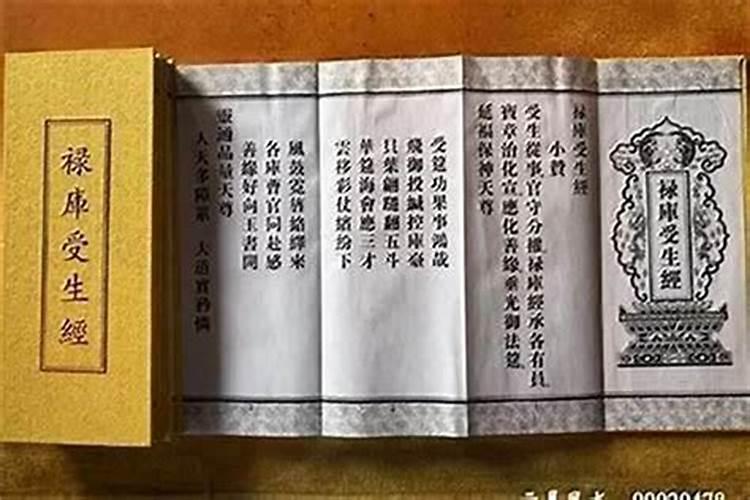 禄庫受生經
禄庫受生經
禄庫受生經
小贊
受生從事官守分權禄庫經承各有員
寶章治化宣應化善緣垂光御法筵
延福保神天尊
受筵功果事鴻哉
飛御投緘控庫臺
貝葉翩翻五斗
華筵海會應三才
雲移彩仗繽紛下
風鼓霓旌絡繹來
各庫曹官同赴感
善緣好向玉書開
靈通品量天尊
人天多障
大道實矜憐